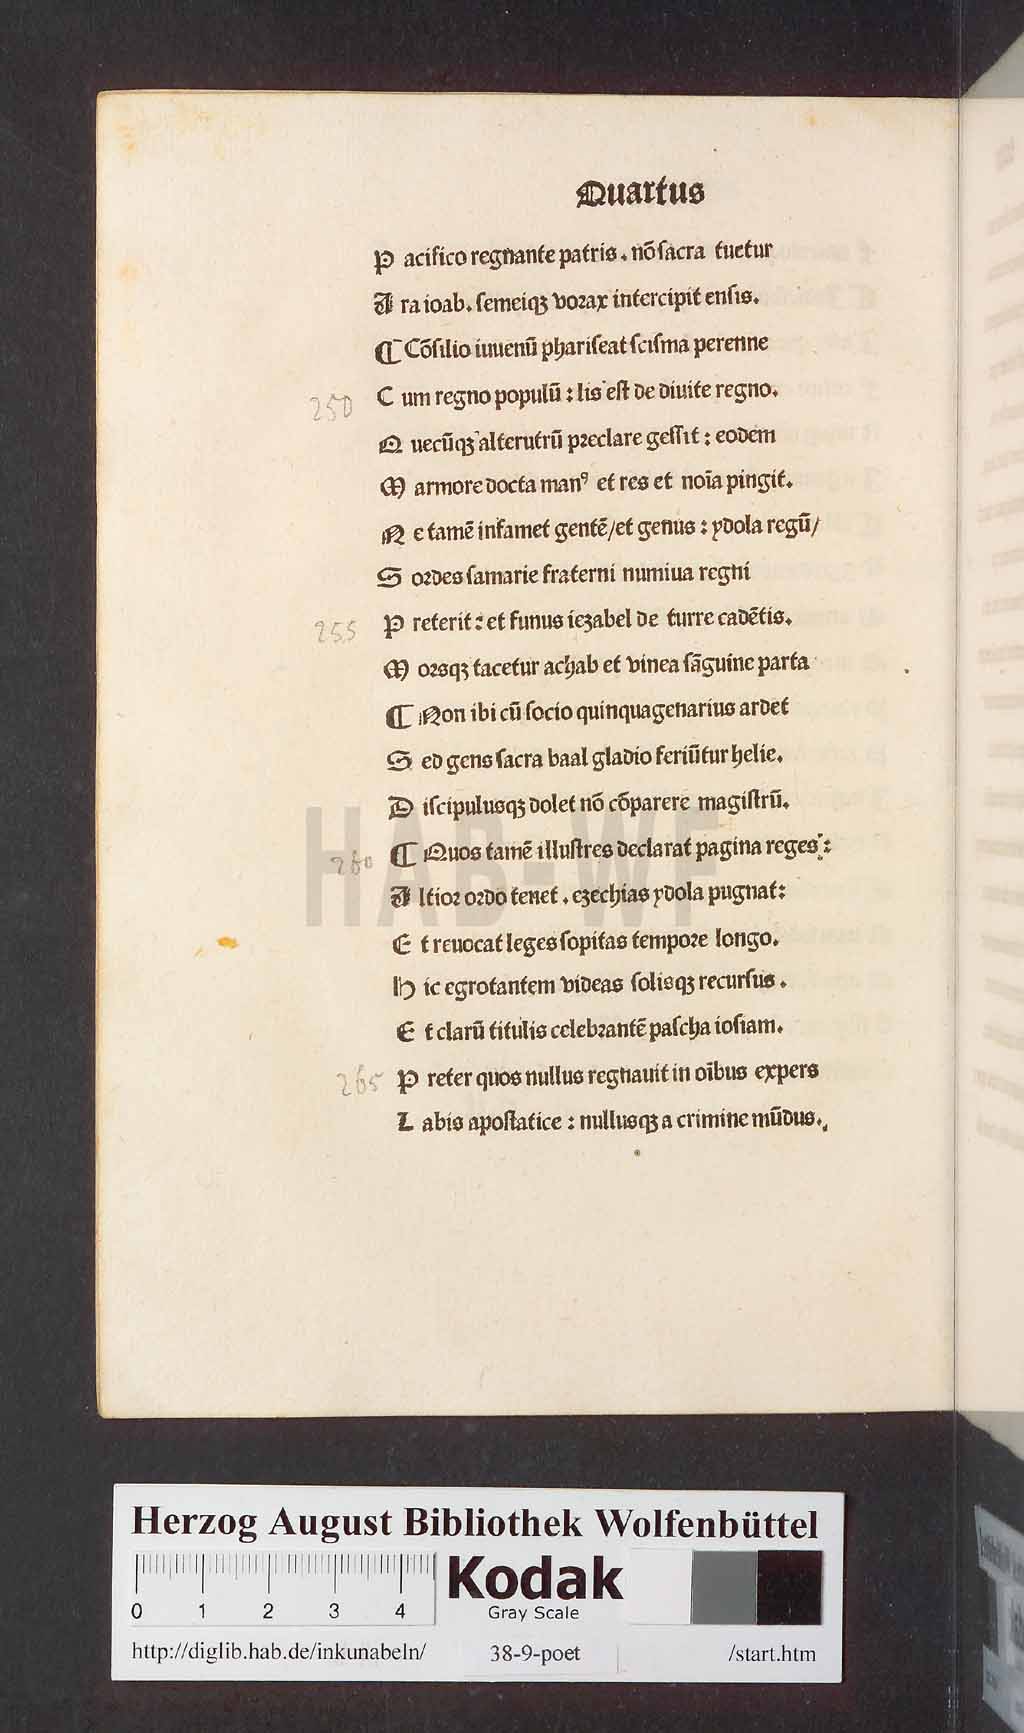 Quartus
P acifico regnante patris . nō ſacra tuetur
A ra ioab. ſemeiqꝫ voꝛax intercipit enſis.
¶ Cōſilio iuuenū phariſeat ſciſma perenne
250 C um regno populū : lis eſt de diuite regno.
Q uecūqꝫ alterutrū pꝛeclare geſſit : eodem
M armore docta manꝰ et res et noīa pingit.
N e tamē infamet gentē/et genus : ydola regū/
S oꝛdes ſamarie fraterni numiua regni
255 P reterit : et funus iezabel de turre cadētis.
M oꝛsqꝫ tacetur achab et vinea ſāguine parta
¶ Non ibi cū ſocio quinquagenarius ardet
S ed gens ſacra baal gladio feriūtur helie.
D iſcipulusqꝫ dolet nō cōparere magiſtrū.
260 ¶ Quos tamē illuſtres declarat pagina reges :
A ltioꝛ oꝛdo tenet . ezechias ydola pugnat :
E t reuocat leges ſopitas tempoꝛe longo.
H ic egrotantem videas ſolisqꝫ recurſus .
E t clarū titulis celebꝛantē paſcha ioſiam.
265 P reter quos nullus regnauit in oībus expers
L abis apoſtatice : nullusqꝫ a crimine mūdus.
HAB-WF
Herzog August Bibliothek Wolfenbüttel
0 1 2 3 4
Kodak
Gray Scale
http://diglib.hab.de/inkunabeln/ 38-9-poet /start.htm